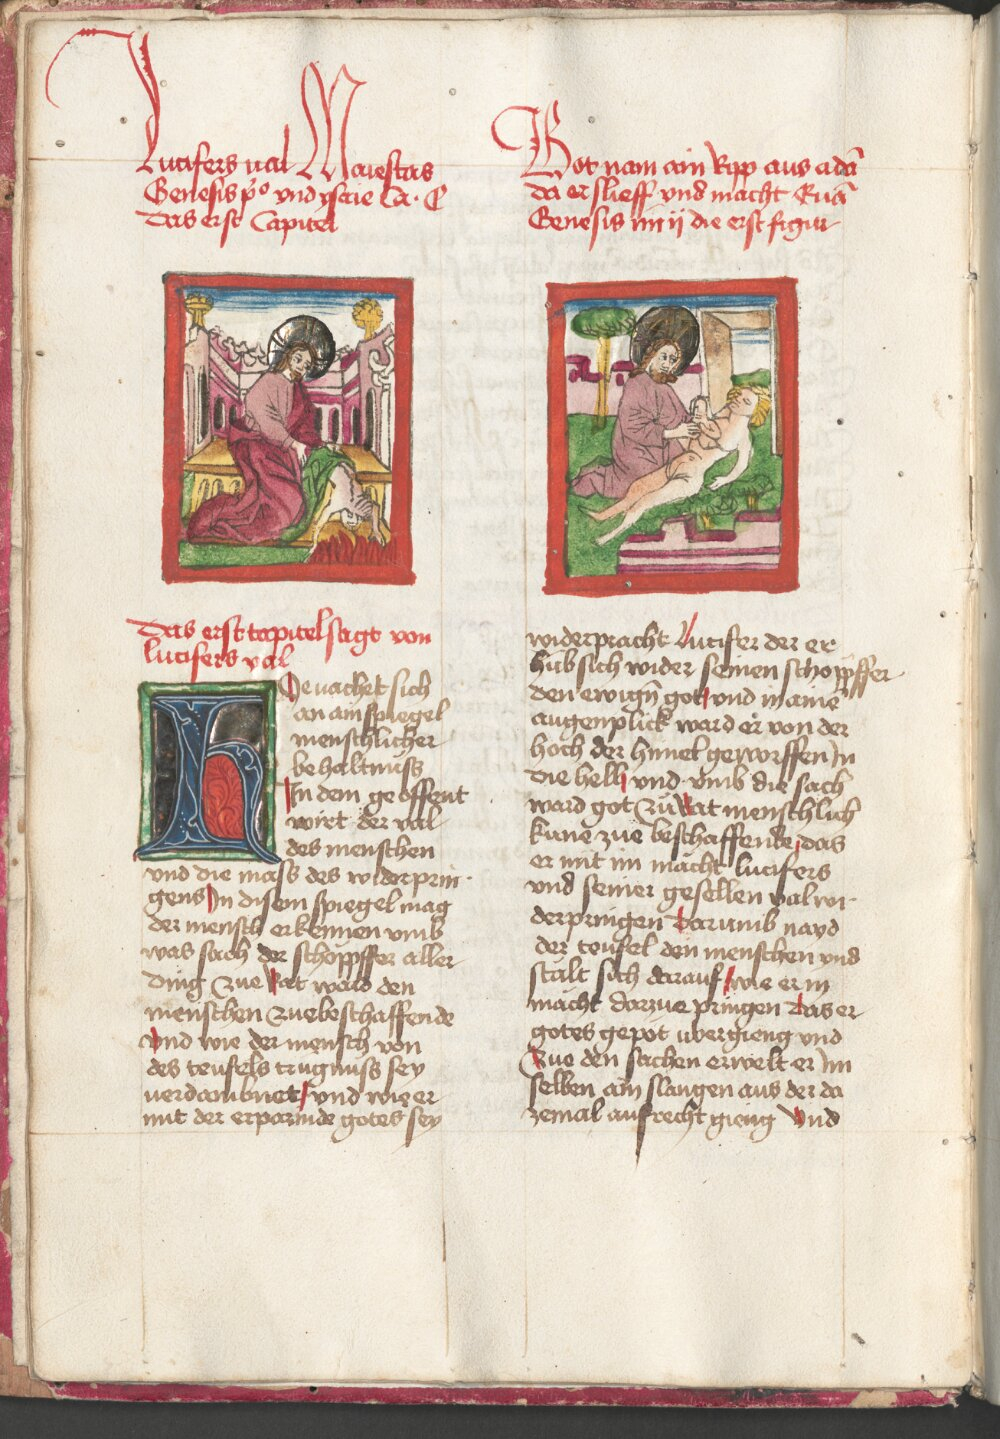 Lucifers val Maiestas
Genesis p̊ vnd ysaie ca. C
Das erst Capitel
Das erst capitel sagt von
lucifers val
He vachet sich
an ain spiegel
menschlicher
behaltnuss
In dem geoffent
wirt der val
des menschen
vnd die mass des widerprin-
gens In disem spiegel mag
der mensch erkennen vmb
was sach der schöpffer aller
ding zue Rat ward den
menschen zuebeschaffende
Vnd wie der mensch von
des teufels trugnuss sey
verdambnet vnd wie er
mit der erparmde gotes sey
Got nam ain Ripp aus adā
da er slieff vnd macht Euā
Genesis die erst figur
widerpracht Lucifer der er
hub sich wider seinen schöpffer
den ewign̄ got vnd in aine
augenplick ward er von der
hoch der himel geworffen In
die hell vnd vmb die sach
ward got zu Rat menschlich
kune zue beschaffende das
er mit im macht lucifers
vnd seiner gesellen val wi-
derpringen Darumb nayd
der teufel den menschen vnd
stalt sich darauf wie er in
macht darzue pringen Das er
gotes gepot vbergieng vnd
Zue den sachen erwelt er Im
selben ain slangen aus der da
zemal aufrecht gieng Vnd